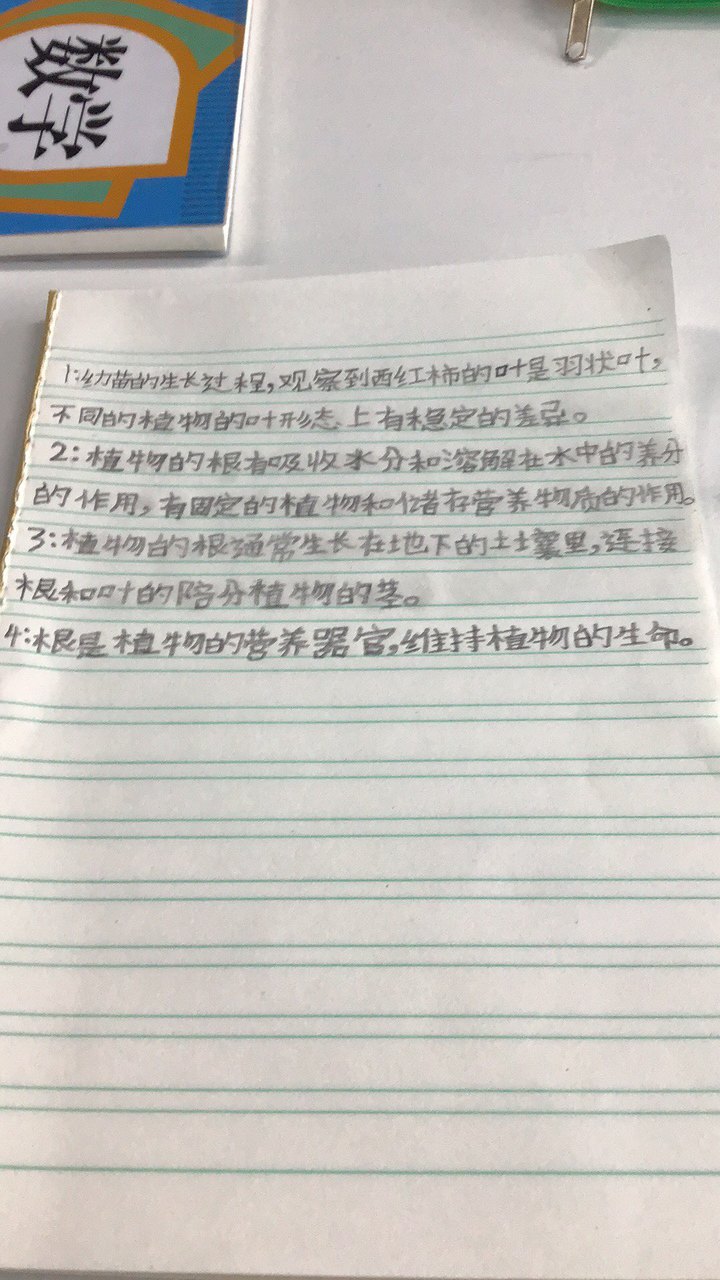 数学
1:幼苗的生长过程,观察到西红柿的叶是羽状叶,
不同的植物的叶形态上有稳定的差异。
2:植物的根有吸收水分和溶解在水中的养分
的作用,有固定的植物和储存营养物质的作用。
3:植物的根通常生长在地下的土壤里,连接
根和叶的陪分植物的茎。
4:根是植物的营养器官,维持植物的生命。